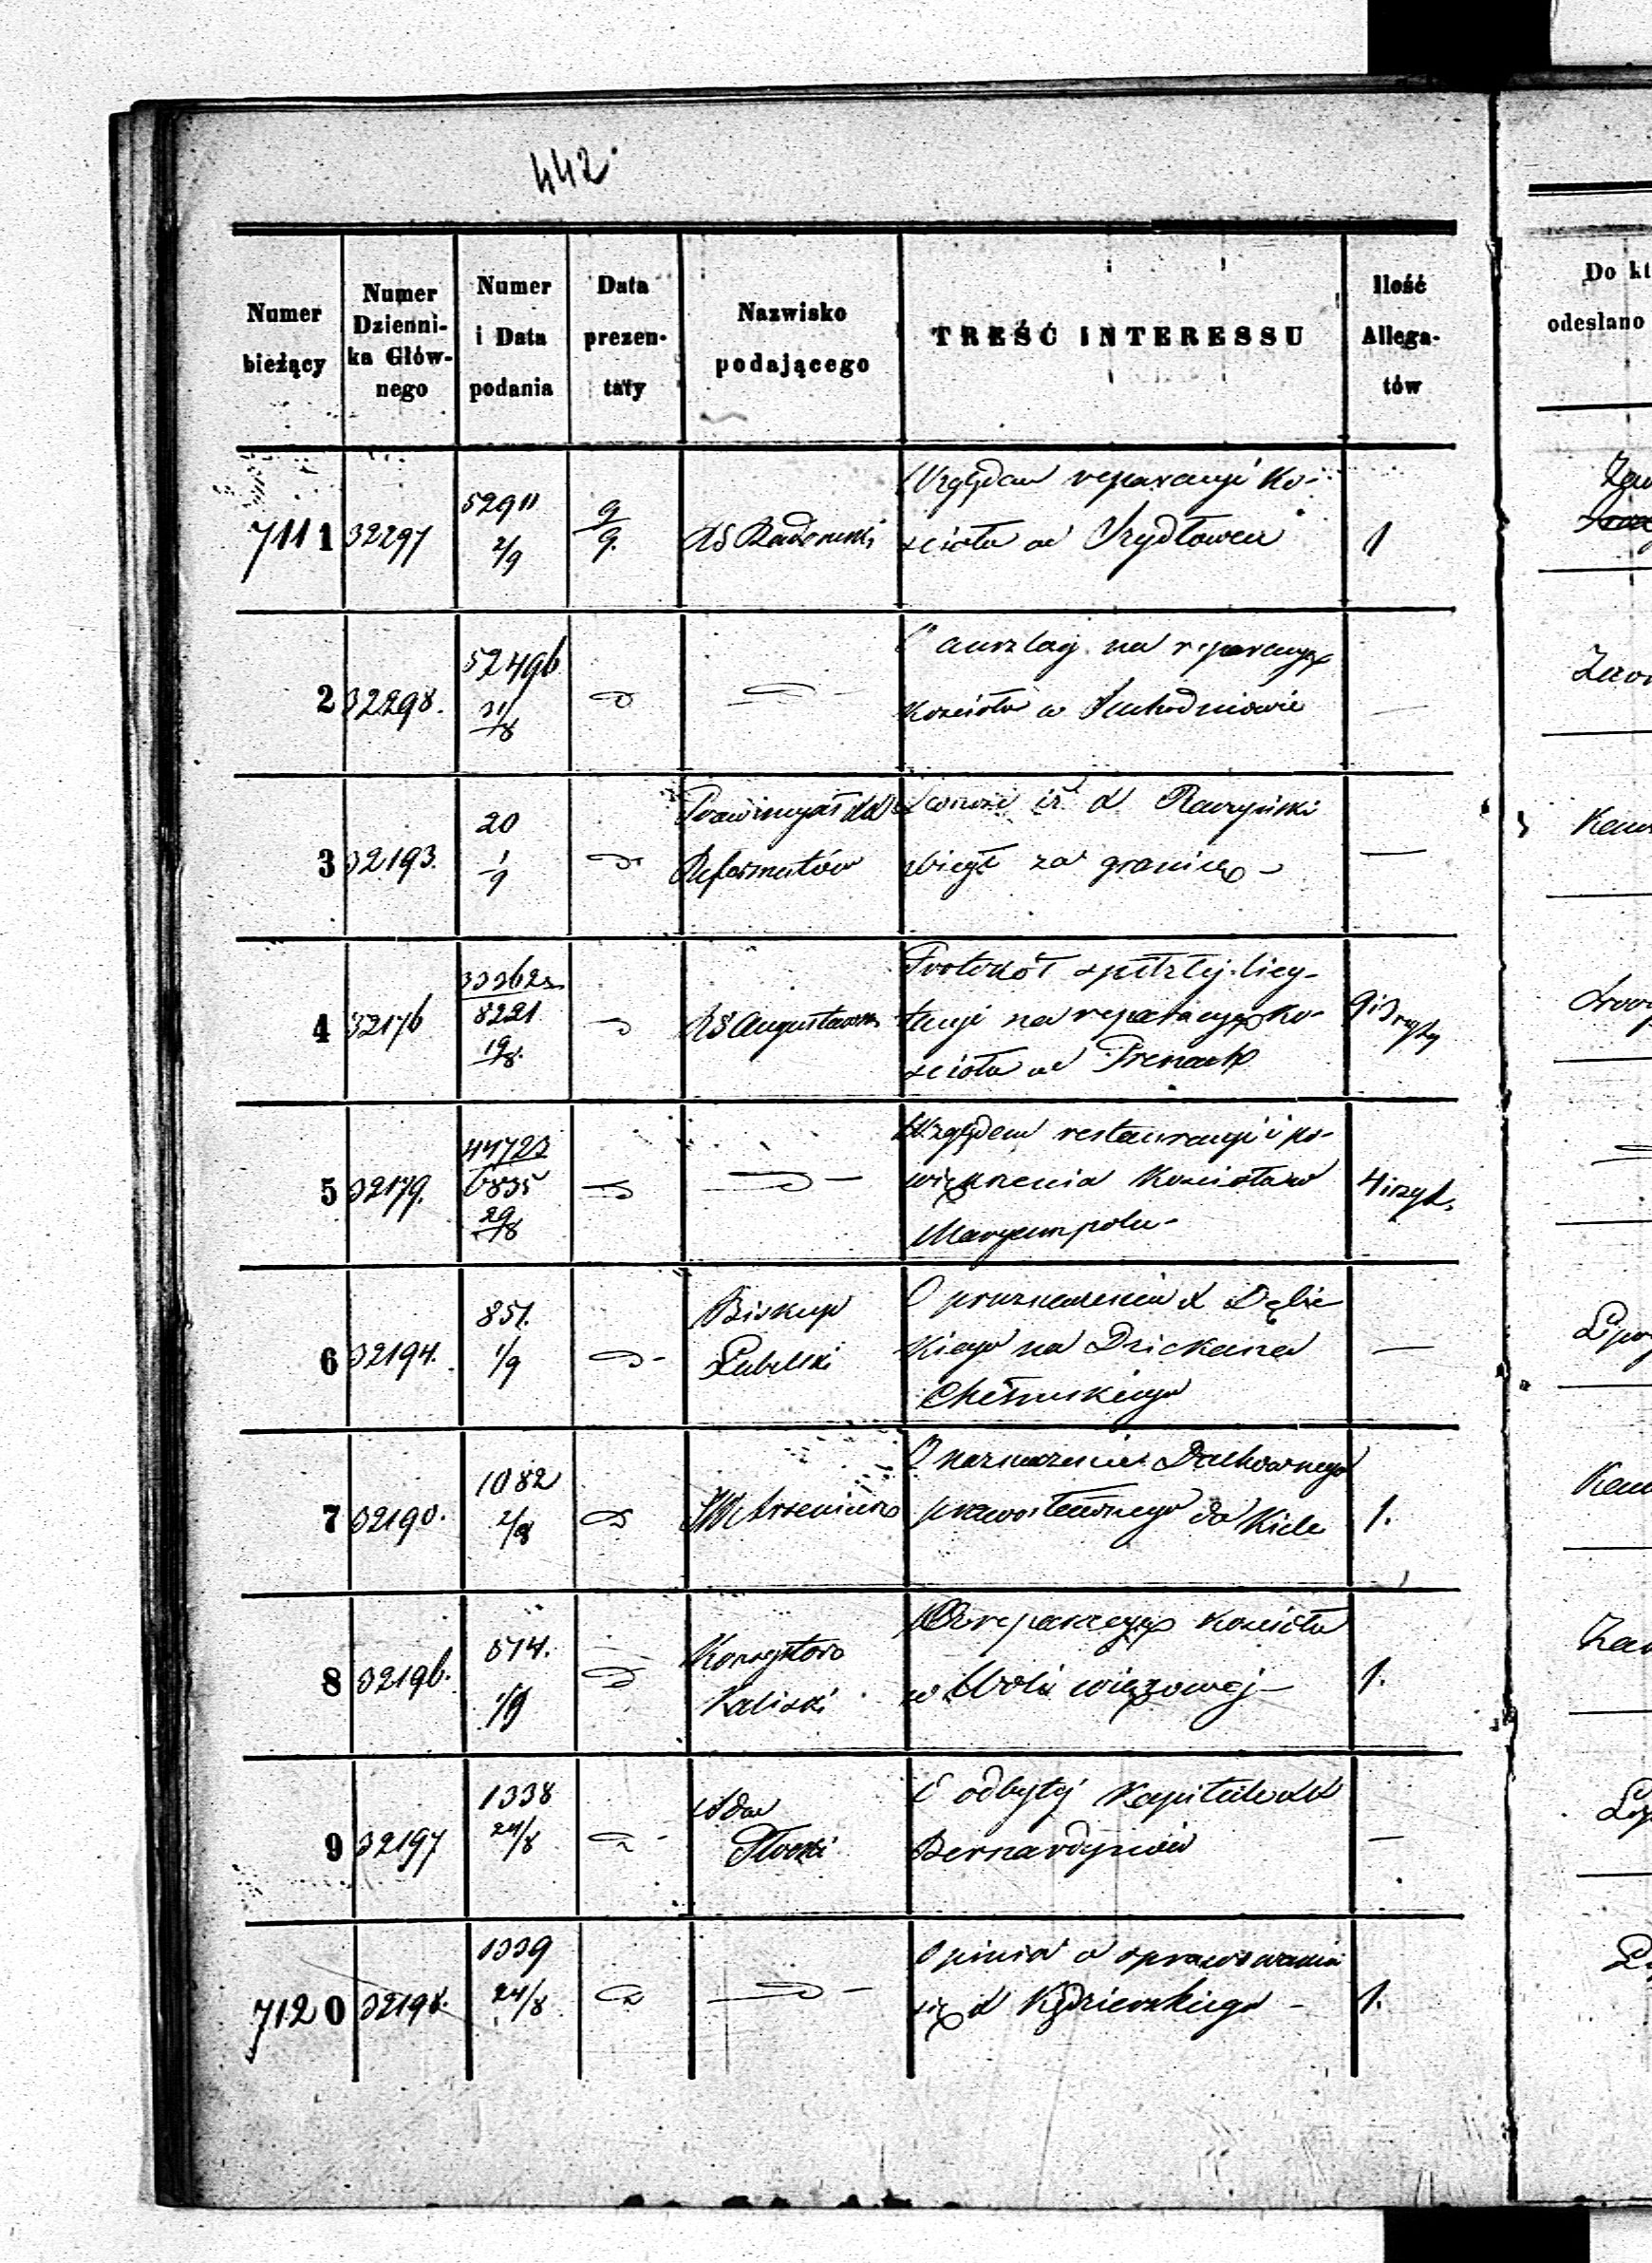 442.
Numer bieżący
Numer Dzienni-
ka Głów-
nego
Numer i Data podania
Data prezen-
taty
Nazwisko podającego
TREŚĆ INTERESSU
Ilość Allega-
tów
Do kt
odesłano
7111 32297 52911 2/9 9/9. RG Radomski
Względem reparacyi Ko-
ścioła w Szydłowcu 1
2 32298. 52496 31/8
O anszlag na reparacyę
Kościoła w Suchedniowie —
3 32193. 20 1/9 Prowincyał XX
Reformatów
Donosi iż X Raczyński
zbiegł za granicę —
4 32176 33362 8221 19/8. RG Augustowski
Protokół spełzłej licy-
tacyi na reparacyę Ko-
ścioła w Prenach
5 32179. 44723 6835 29/8
Względem restauracyi i po-
większenia Kościoła w
Maryampolu - 4 i rys.
6 32194. 851. 1/9 Biskup
Lubelski
O przeznaczeniu X Dębic
kiego na Dziekana
Chełmskiego —
7 32190. 1082 2/8 JW Arseniusz
O naznaczenie Duchownego
prawosławnego do Kielc 1.
8 32196. 574. 1/9 Konsystorz
Kaliski
O reparacyę Kościoła
w Woli więzowej — 1.
9 32197 1338 24/8 Płocki
O odbytej Kapitule XX
Bernardynów —
7120 32198. 1339 24/8
Opinia o sprawowaniu
się X Kędzierskiego - 1.